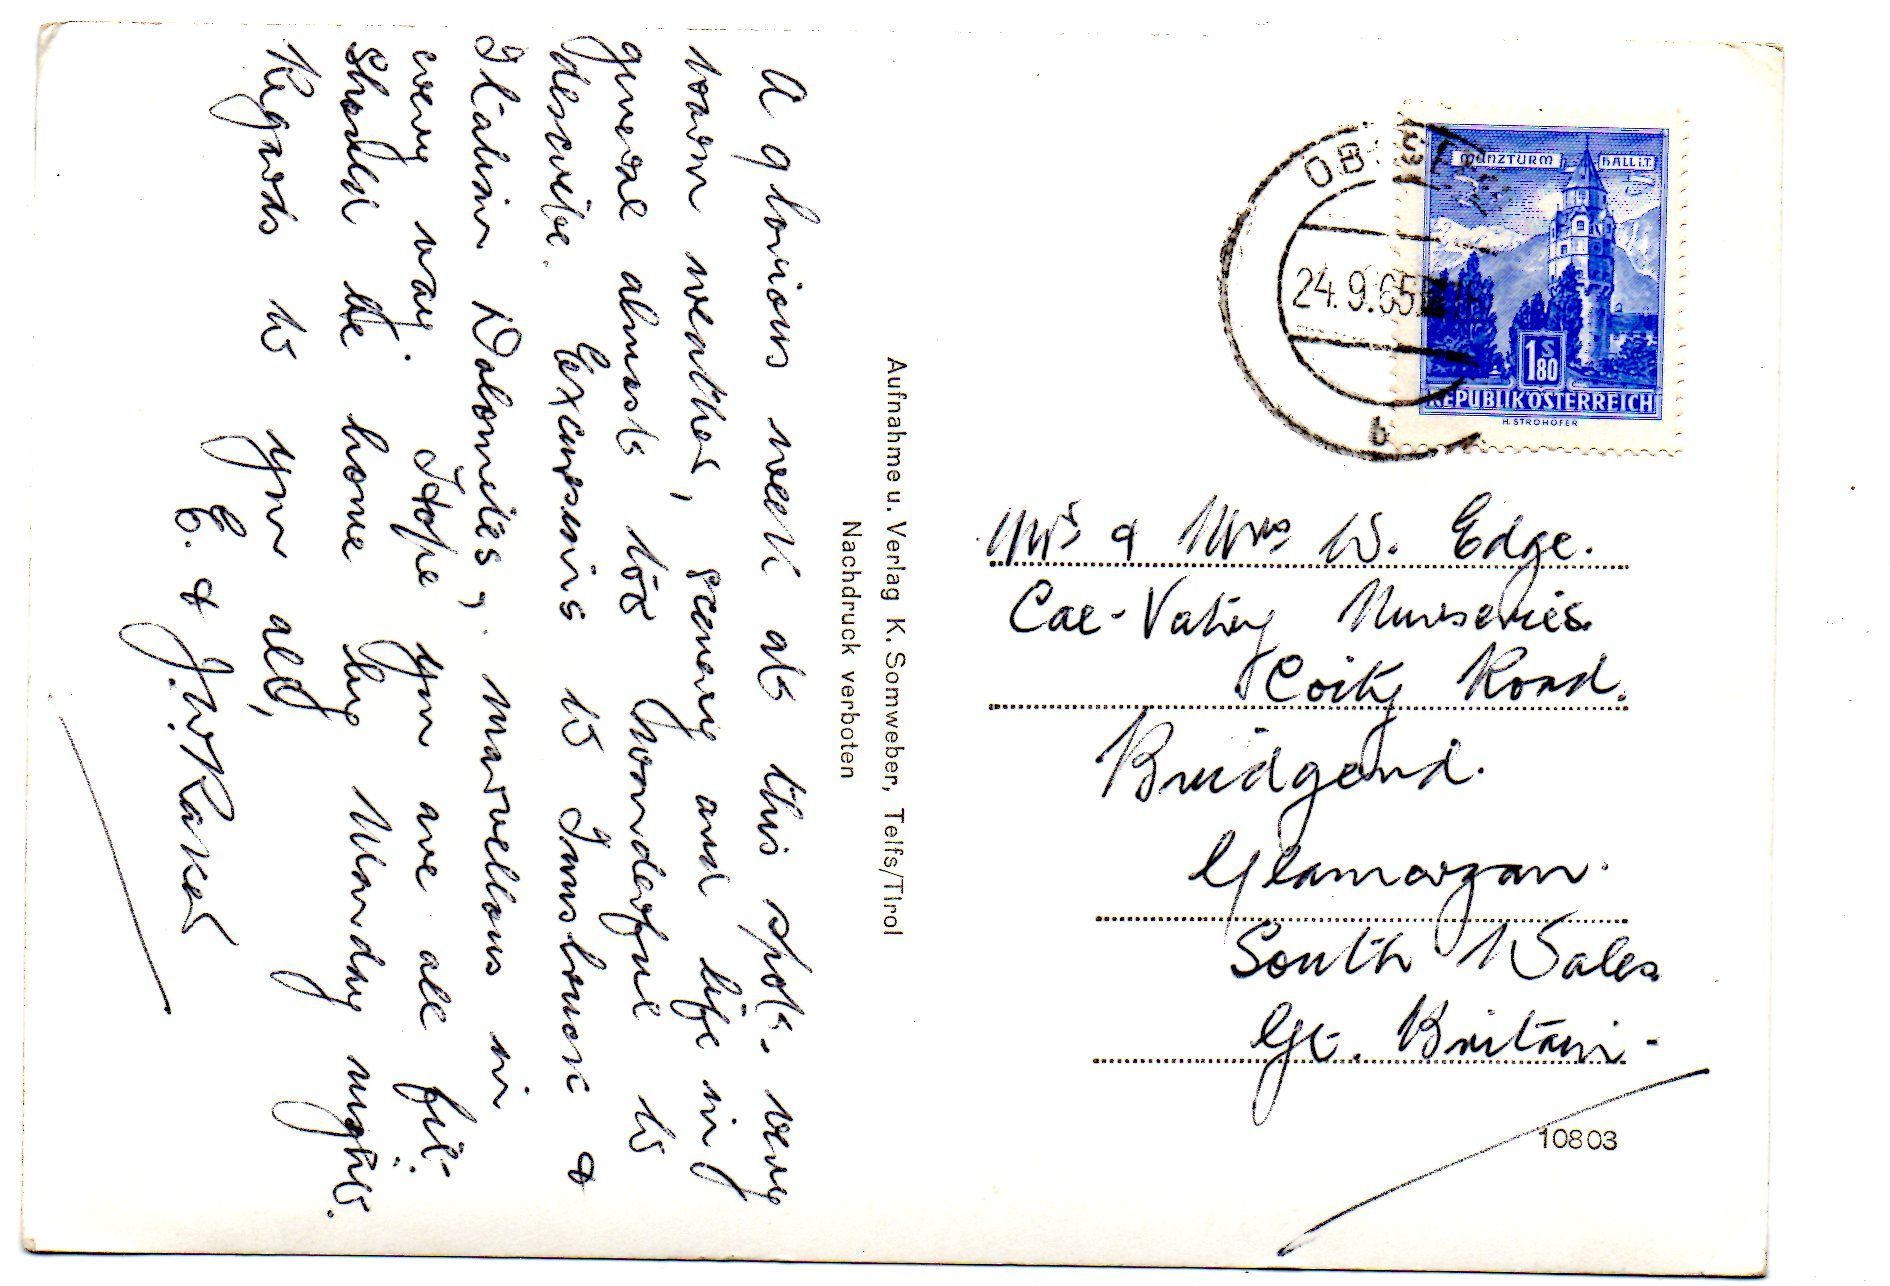 A glorious week at this spot. very
warm weather, scenery and life in
general almost too wonderful to
describe. Excursions to Innsbruck &
Italian Dolomites, marvellous in
every way. Hope you are all fit.
Should be home by Monday night.
Regards to you all,
E. & J.W.
Aufnahme u. Verlag K. Somweber, Telfs/Tirol
Nachdruck verboten
24.9.65
b
MÜNZTURM HALL i.T.
1 S 80
REPUBLIK ÖSTERREICH
H. STROHOFER
Mr & Mrs W. Edge.
Nurseries.
Coity Road.
Bridgend.
Glamorgan.
South Wales
Gt. Britain-
10803